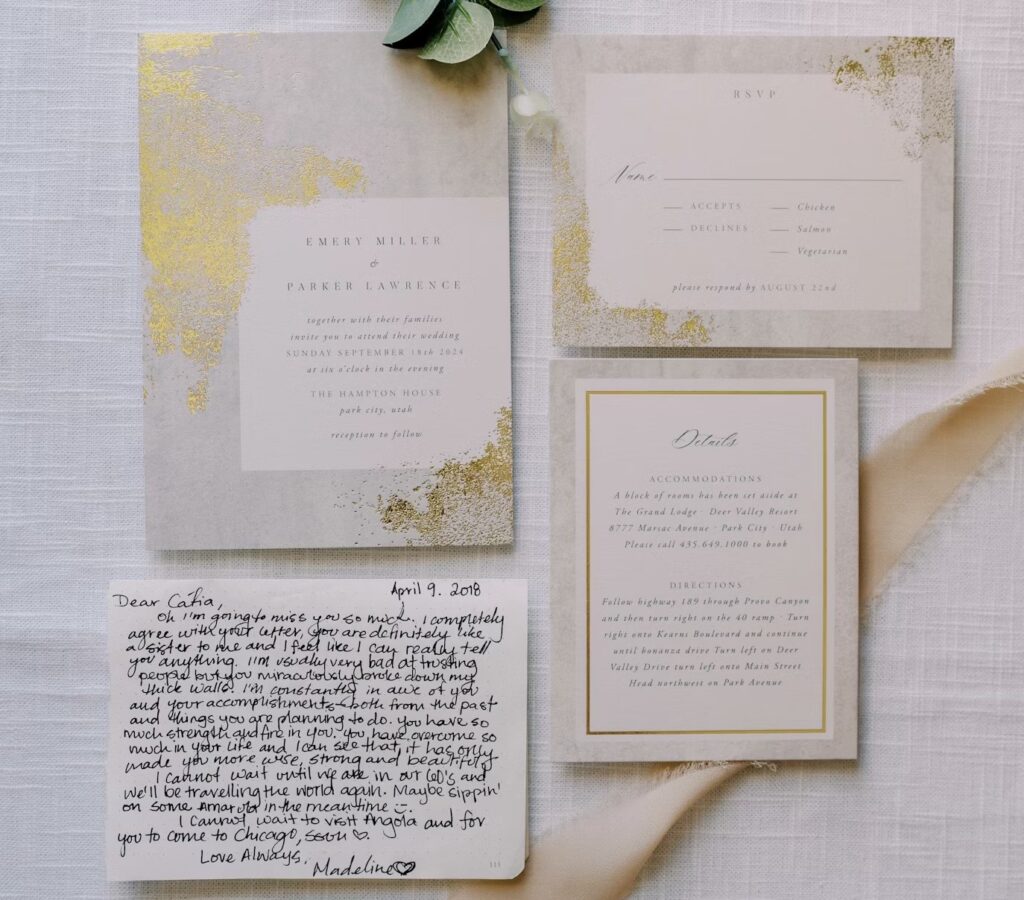 EMERY MILLER
&
PARKER LAWRENCE
together with their families
invite you to attend their wedding
SUNDAY SEPTEMBER 18th 2024
at six o'clock in the evening
THE HAMPTON HOUSE
park city, utah
reception to follow
RSVP
Name
ACCEPTS
DECLINES
Chicken
Salmon
Vegetarian
please respond by AUGUST 22nd
Details
ACCOMMODATIONS
A block of rooms has been set aside at
The Grand Lodge · Deer Valley Resort
8777 Marsac Avenue · Park City · Utah
Please call 435.649.1000 to book
DIRECTIONS
Follow highway 189 through Provo Canyon
and then turn right on the 40 ramp · Turn
right onto Kearns Boulevard and continue
until bonanza drive Turn left on Deer
Valley Drive turn left onto Main Street
Head northwest on Park Avenue
April 9. 2018
Dear Catia,
Oh I'm going to miss you so much. I completely
agree with your letter, you are definitely like
a sister to me and I feel like I can really tell
you anything. I'm usually very bad at trusting
people but you miraculously broke down my
thick walls. I'm constantly in awe of you
and your accomplishments - both from the past
and things you are planning to do. you have so
much strength and fire in you. you have overcome so
much in your life and I can see that it has only
made you more wise, strong and beautiful
I cannot wait until we are in our 60's and
we'll be travelling the world again. Maybe sippin'
on some Amarula in the meantime :-.
I cannot wait to visit Angola and for
you to come to Chicago, soon ♡.
Love Always,
Madeline♡
111